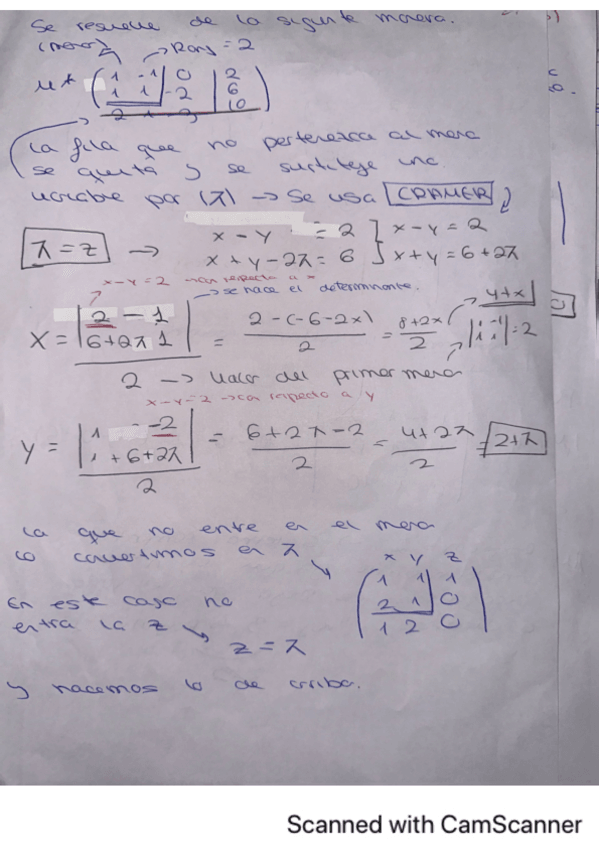 Se resuelve de la siguiente manera.
(menor) → Rang = 2
M* ( 1 -1 | 0 | 2
1 1 | -2 | 6
2 + -2 | 10 )
la fila que no pertenezca al menor
se quita y se sustituye una
variable por (λ) → Se usa CRAMER
λ = z → x - y = 2 } x - y = 2
x + y - 2λ = 6 } x + y = 6 + 2λ
x - y = 2 → con respecto a x
→ se hace el determinante.
X = | 2 - 1 | = 2 - (-6 - 2x) = 8 + 2x 4 + x
| 6+2λ 1 | 2 2 | 1 -1 | = 2
2 → Valor del primer menor | 1 1 |
x - y = 2 → con respecto a y
Y = | 1 -2 | = 6 + 2λ - 2 = 4 + 2λ = 2 + λ
| 1 + 6 + 2λ | 2 2
2
la que no entre en el menor
lo convertimos en λ
x y z
( 1 1 | 1
En este caso no 2 1 | 0
entra la z 1 2 0 )
z = λ
y hacemos lo de arriba.
Scanned with CamScanner